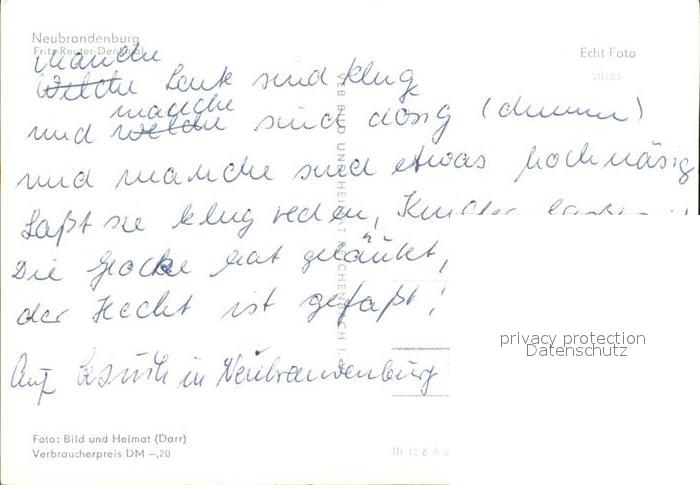 Neubrandenburg
Fritz-Reuter-Denkmal
Echt Foto
Manche
Welche Leute sind klug
manche
und welche sind dösig (dumm)
und manche sind etwas hochnäsig
Laßt sie klug reden, Kinder
Die Glocke hat geläutet,
der Hecht ist gefaßt!
Auf Besuch in Neubrandenburg
VEB BILD UND HEIMAT REICHENBACH I.
privacy protection
Datenschutz
Foto: Bild und Heimat (Darr)
Verbraucherpreis DM –,20